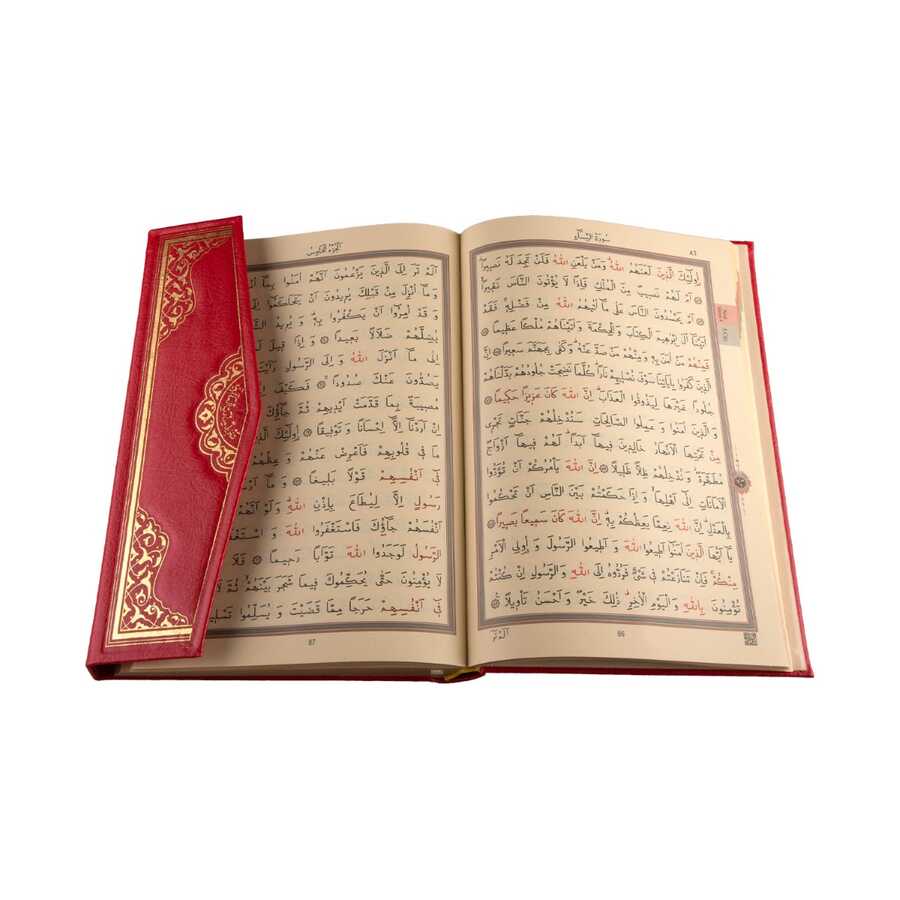 سُورَةُ النِّسَاءِ
٨٦
اُو۬لٰٓئِكَ الَّذ۪ينَ لَعَنَهُمُ اللّٰهُۜ وَمَنْ يَلْعَنِ اللّٰهُ فَلَنْ تَجِدَ لَهُ نَص۪يراًۜ
اَمْ لَهُمْ نَص۪يبٌ مِنَ الْمُلْكِ فَاِذاً لَا يُؤْتُونَ النَّاسَ نَق۪يراًۙ
اَمْ يَحْسُدُونَ النَّاسَ عَلٰى مَٓا اٰتٰيهُمُ اللّٰهُ مِنْ فَضْلِه۪ۚ فَقَدْ
اٰتَيْنَٓا اٰلَ اِبْرٰه۪يمَ الْكِتَابَ وَالْحِكْمَةَ وَاٰتَيْنَاهُمْ مُلْكاً عَظ۪يماً
فَمِنْهُمْ مَنْ اٰمَنَ بِه۪ وَمِنْهُمْ مَنْ صَدَّ عَنْهُۜ وَكَفٰى بِجَهَنَّمَ سَع۪يراً اِنَّ
الَّذ۪ينَ كَفَرُوا بِاٰيَاتِنَا سَوْفَ نُصْل۪يهِمْ نَاراًۜ كُلَّمَا نَضِجَتْ جُلُودُهُمْ بَدَّلْنَاهُمْ
جُلُوداً غَيْرَهَا لِيَذُوقُوا الْعَذَابَۜ اِنَّ اللّٰهَ كَانَ عَز۪يزاً حَك۪يماً
وَالَّذ۪ينَ اٰمَنُوا وَعَمِلُوا الصَّالِحَاتِ سَنُدْخِلُهُمْ جَنَّاتٍ تَجْر۪ي
مِنْ تَحْتِهَا الْاَنْهَارُ خَالِد۪ينَ ف۪يهَٓا اَبَداًۜ لَهُمْ ف۪يهَٓا اَزْوَاجٌ
مُطَهَّرَةٌۘ وَنُدْخِلُهُمْ ظِلاًّ ظَل۪يلاً اِنَّ اللّٰهَ يَأْمُرُكُمْ اَنْ تُؤَدُّوا
الْاَمَانَاتِ اِلٰٓى اَهْلِهَاۙ وَاِذَا حَكَمْتُمْ بَيْنَ النَّاسِ اَنْ تَحْكُمُوا
بِالْعَدْلِۜ اِنَّ اللّٰهَ نِعِمَّا يَعِظُكُمْ بِه۪ۜ اِنَّ اللّٰهَ كَانَ سَم۪يعاً بَص۪يراً
يَٓا اَيُّهَا الَّذ۪ينَ اٰمَنُٓوا اَط۪يعُوا اللّٰهَ وَاَط۪يعُوا الرَّسُولَ وَاُو۬لِي الْاَمْرِ
مِنْكُمْۚ فَاِنْ تَنَازَعْتُمْ ف۪ي شَيْءٍ فَرُدُّوهُ اِلَى اللّٰهِ وَالرَّسُولِ اِنْ كُنْتُمْ
تُؤْمِنُونَ بِاللّٰهِ وَالْيَوْمِ الْاٰخِرِۜ ذٰلِكَ خَيْرٌ وَاَحْسَنُ تَأْو۪يلاً
اَلَمْ تَرَ
86
اَلْجُزْءُ الْخَامِسُ
اَلَمْ تَرَ اِلَى الَّذ۪ينَ يَزْعُمُونَ اَنَّهُمْ اٰمَنُوا بِمَٓا
وَمَٓا اُنْزِلَ مِنْ قَبْلِكَ يُر۪يدُونَ اَنْ يَتَحَاكَمُٓوا
وَقَدْ اُمِرُٓوا اَنْ يَكْفُرُوا بِه۪ۜ وَيُر۪يدُ
يُضِلَّهُمْ ضَلَالاً بَع۪يداً وَاِذَا ق۪يلَ
اِلٰى مَٓا اَنْزَلَ اللّٰهُ وَاِلَى الرَّسُولِ رَاَيْتَ
يَصُدُّونَ عَنْكَ صُدُوداًۚ فَكَيْفَ
مُص۪يبَةٌ بِمَا قَدَّمَتْ اَيْد۪يهِمْ ثُمَّ جَٓاؤُ۫كَ
اِنْ اَرَدْنَٓا اِلَّٓا اِحْسَاناً وَتَوْف۪يقاً اُو۬لٰٓئِكَ
مَا ف۪ي قُلُوبِهِمْ فَاَعْرِضْ عَنْهُمْ وَعِظْهُمْ
ف۪ٓي اَنْفُسِهِمْ قَوْلاً بَل۪يغاً وَمَٓا
رَسُولٍ اِلَّا لِيُطَاعَ بِاِذْنِ اللّٰهِۜ وَلَوْ اَنَّهُمْ
اَنْفُسَهُمْ جَٓاؤُ۫كَ فَاسْتَغْفَرُوا اللّٰهَ وَاسْتَغْفَرَ
الرَّسُولُ لَوَجَدُوا اللّٰهَ تَوَّاباً رَح۪يماً
لَا يُؤْمِنُونَ حَتّٰى يُحَكِّمُوكَ ف۪يمَا شَجَرَ بَيْنَهُمْ ثُمَّ لَا
ف۪ٓي اَنْفُسِهِمْ حَرَجاً مِمَّا قَضَيْتَ وَيُسَلِّمُوا
87